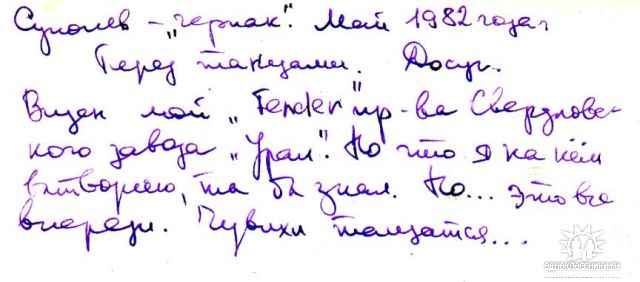 Суполев - „черпак". Май 1982 года.
Перед танцами. Досуг.
Виден мой „Fender" пр-ва Свердловс-
кого завода „Урал". Но что я на нём
вытворяю, та бы знал. Но... это все
впереди. Чувихи тащатся...
ODNOKLASSNIKI.RU